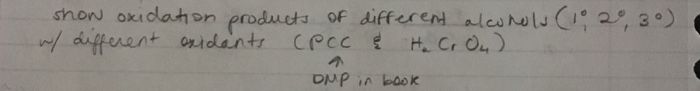 show oxidation products of different alcohols (1°, 2°, 3°)
w/ different oxidants (PCC & H₂CrO₄)
↑
DMP in book